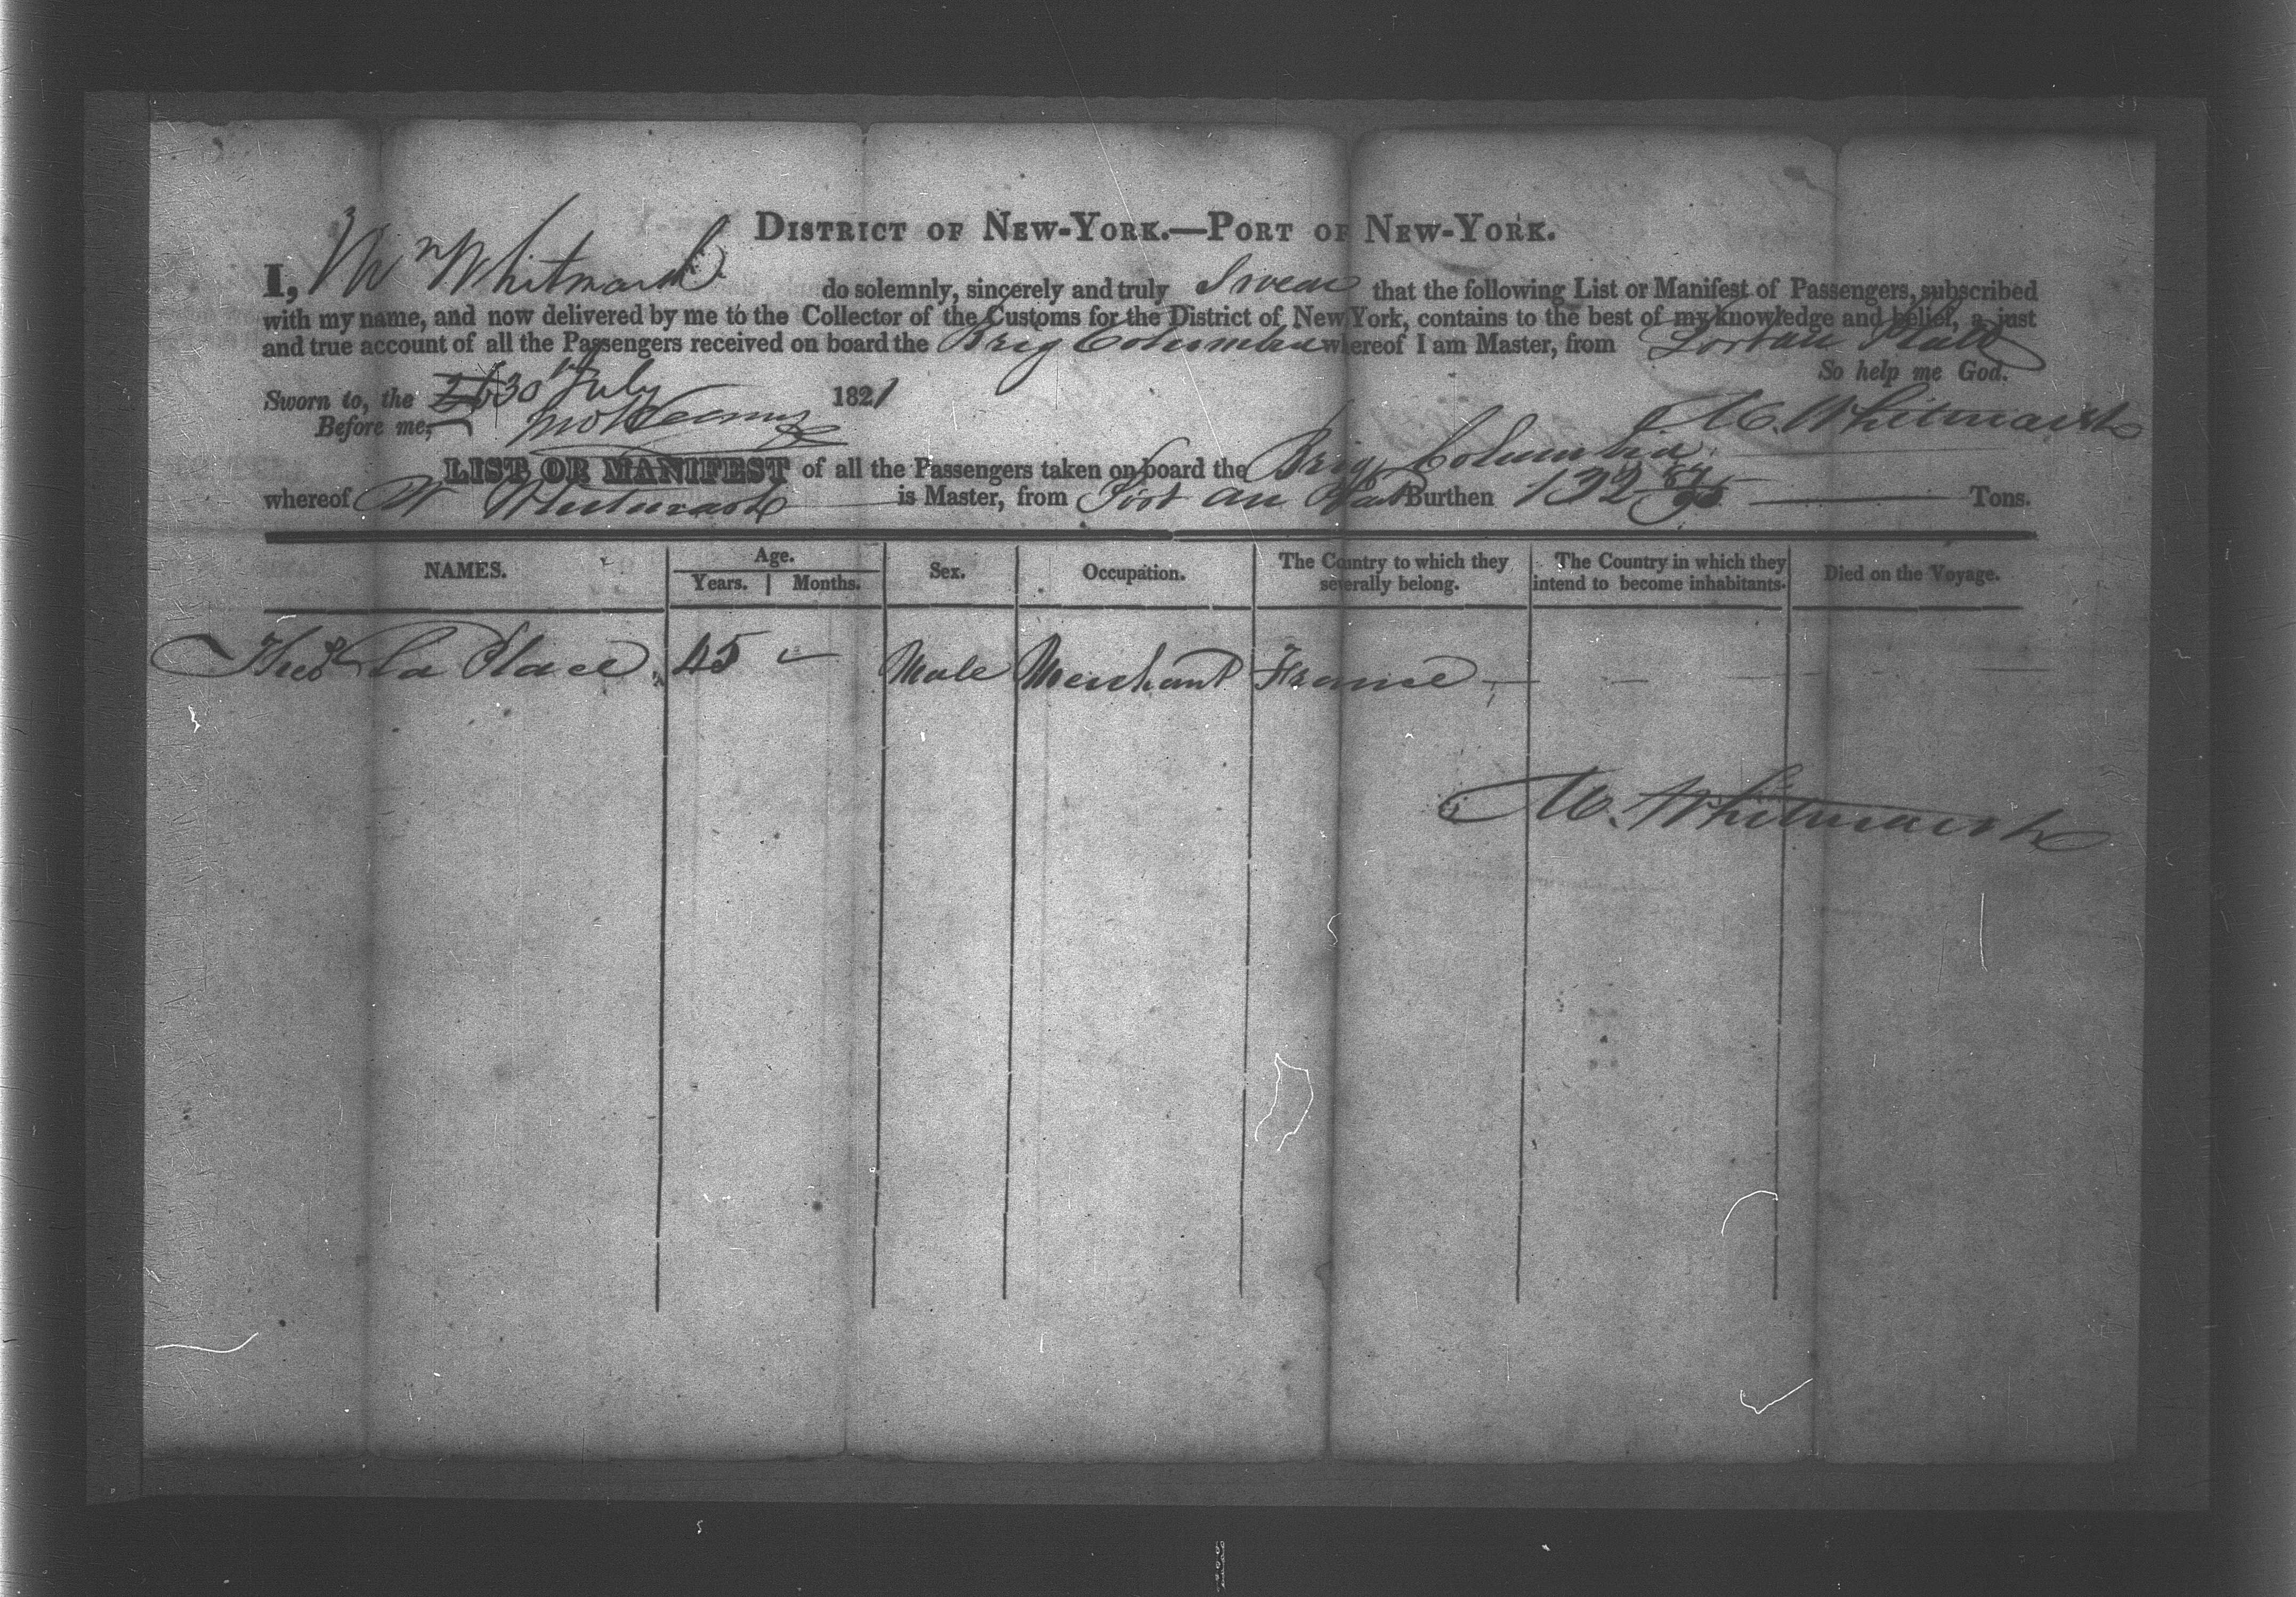 DISTRICT OF NEW-YORK.—PORT OF NEW-YORK.
I, Wm Whitmarsh do solemnly, sincerely and truly Swear that the following List or Manifest of Passengers, subscribed
with my name, and now delivered by me to the Collector of the Customs for the District of New York, contains to the best of my knowledge and belief, a just
and true account of all the Passengers received on board the Brig Columbia whereof I am Master, from Portau Platt
So help me God.
Sworn to, the 30th July 1821
Before me,
W. Whitmarsh
LIST OR MANIFEST of all the Passengers taken on board the Brig Columbia
whereof W Whitmarsh is Master, from Port au Plat Burthen 132 87/95 Tons.
NAMES. Age. Years. Months. Sex. Occupation. The Country to which they severally belong. The Country in which they intend to become inhabitants. Died on the Voyage.
La Place 45 Male Merchant France
W. Whitmarsh